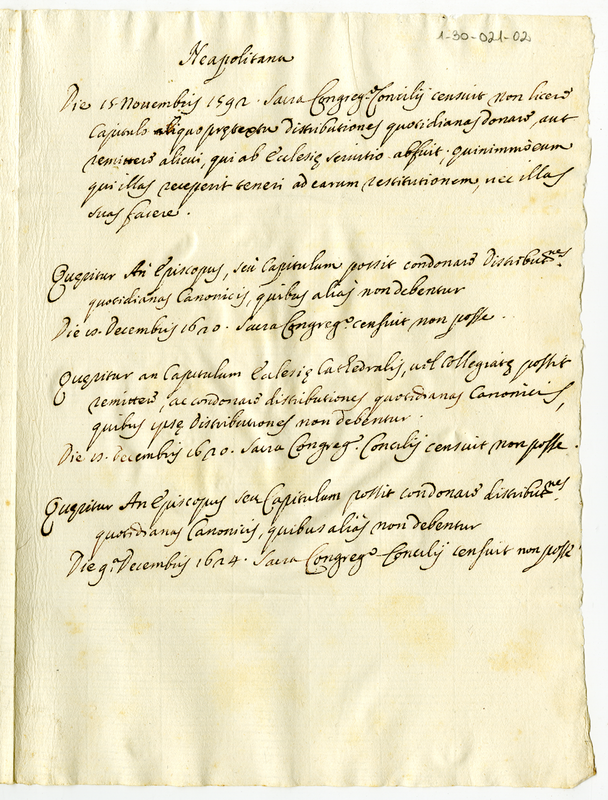 1-30-021-02
Neapolitana
Die 15 Novembris 1592. Sacra Congreg.º Concilij censuit non licere
Capitulo aliquo prętextu distributiones quotidianas donare, aut
remittere alicui, qui ab Eclesię servitio abfuit, quinimmò eum
qui illas receperit teneri ad earum restitutionem, nec illas
suas facere.
Quęritur An Episcopus, seù Capitulum possit condonare Distribut.nes
quotidianas Canonicis, quibus aliàs non debentur
Die 12. Decembris 1620. Sacra Congreg.º censuit non posse.
Quęritur an Capitulum Eclesię Cathedralis, vèl Collegiatę possit
remittere, ac condonare distributiones quotidianas Canonicis,
quibus ipsę Distributiones non debentur.
Die 12. Decembris 1620. Sacra Congreg.º Concilij censuit non posse.
Quęritur An Episcopus seu Capitulum possit condonare distribut.nes
quotidianas Canonicis, quibus aliàs non debentur
Die 9.ª Decembris 1624. Sacra Congreg.º Concilij censuit non posse